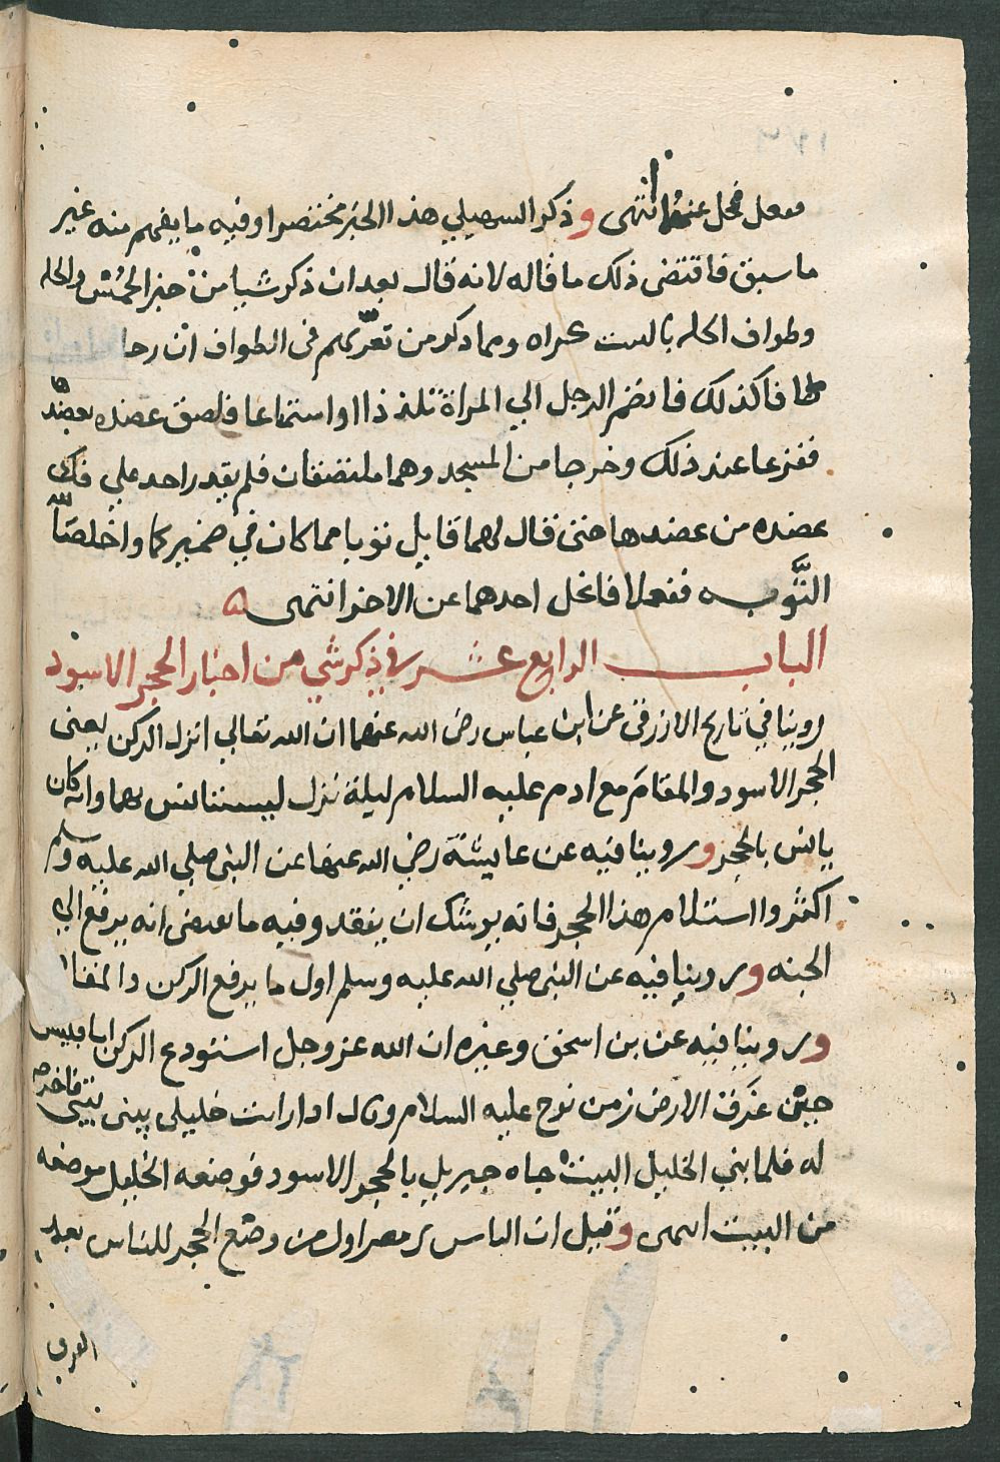 ففعل فحل عنها انتهى وذكر السهيلي هذا الخبر مختصرا وفيه ما يفهم منه غير
ما سبق فاقتضى ذلك ما قاله لانه قال بعد ان ذكر شيا من خبر الحمس والحله
وطواف الحله بالبيت عراه ومما ذكر من تعريهم في الطواف ان رجا
طافا كذلك فانضم الرجل الي المراة تلذذا او استمتاعا فلصق عضده بعضدها
ففزعا عند ذلك وخرجا من المسجد وهما ملتصقان فلم يقدر احد علي فك
عضده من عضدها حتى قال لهما قايل توبا مما كان في ضميركما واخلصا لله
التوبه ففعلا فانحل احدهما عن الاخر انتهى ه
الباب الرابع عشر في ذكر شي من اخبار الحجر الاسود
روينا في تاريخ الازرقي عن ابن عباس رضي الله عنهما ان الله تعالي انزل الركن يعنى
الحجر الاسود والمقام مع ادم عليه السلام ليلة نزل ليستانس بهما وانه كان
يانس بالحجر وروينا فيه عن عايشة رضي الله عنها عن النبي صلي الله عليه وسلم
اكثروا استلام هذا الحجر فانه يوشك ان يفقد وفيه ما يقتضى انه يرفع الي
الجنه وروينا فيه عن النبي صلي الله عليه وسلم اول ما يرفع الركن والمقا
وروينا فيه عن بن اسحق وغيره ان الله عز وجل استودع الركن ابا قبيس
حين غرق الارض زمن نوح عليه السلام وقال اذا رايت خليلي يبنى بيتى فاخرجه
له فلما بني الخليل البيت جاه جبريل بالحجر الاسود فوضعه الخليل موضعه
من البيت انتهى وقيل ان الياس بن مضر اول من وضع الحجر للناس بعد
الغرق